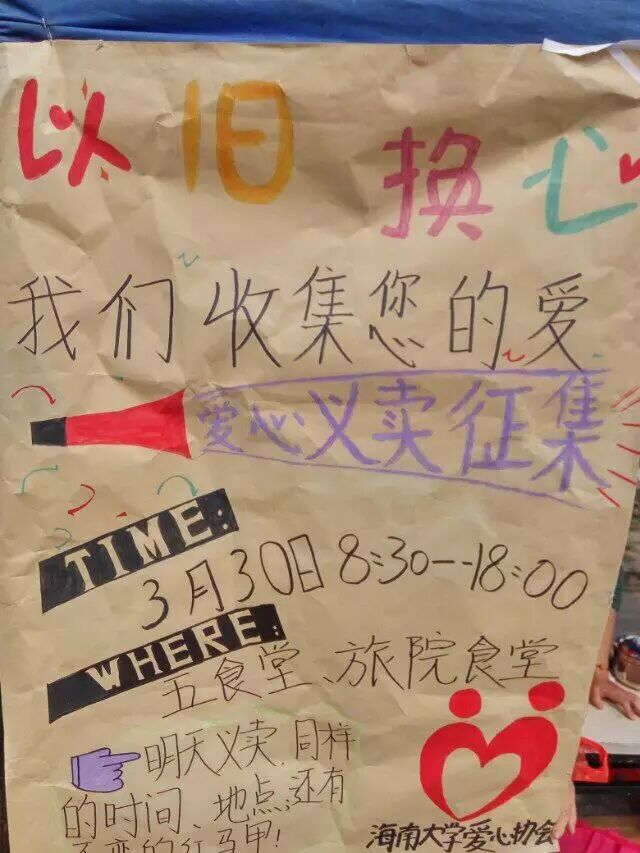 以旧换心
我们收集您的爱
爱心义卖征集
TIME:
3月30日 8:30--18:00
WHERE:
五食堂、旅院食堂
明天义卖,同样
的时间、地点,还有
不变的红马甲!
海南大学爱心协会